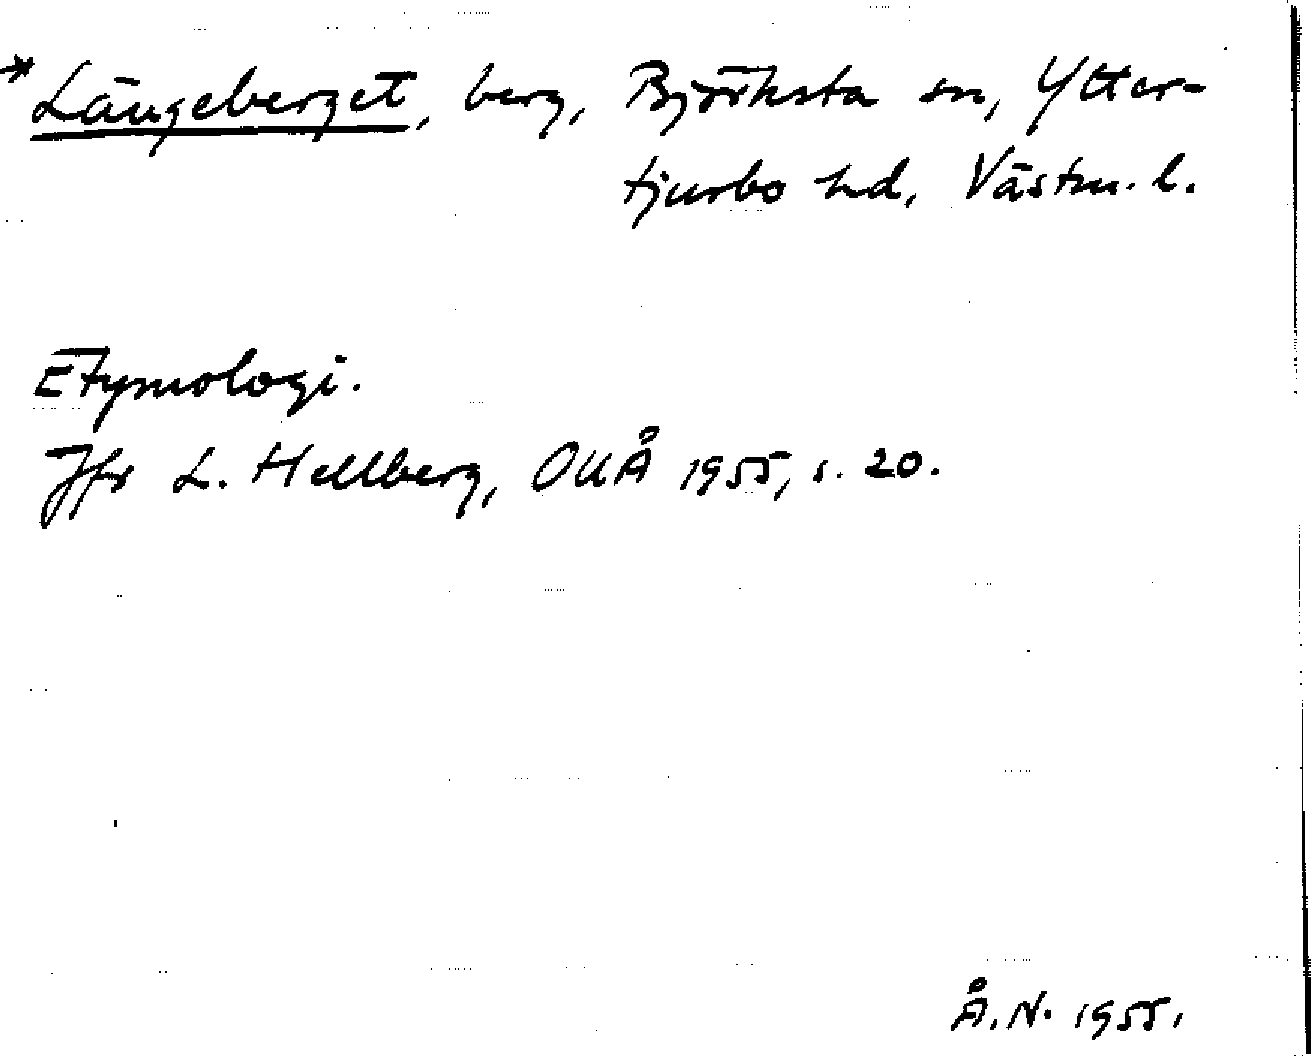 *Längeberget, berg, Björksta sn, Ytter-
tjurbo hd, Västm. l.
Etymologi.
Jfr L. Hellberg, OUÅ 1955, s. 20.
Å. N. 1955.